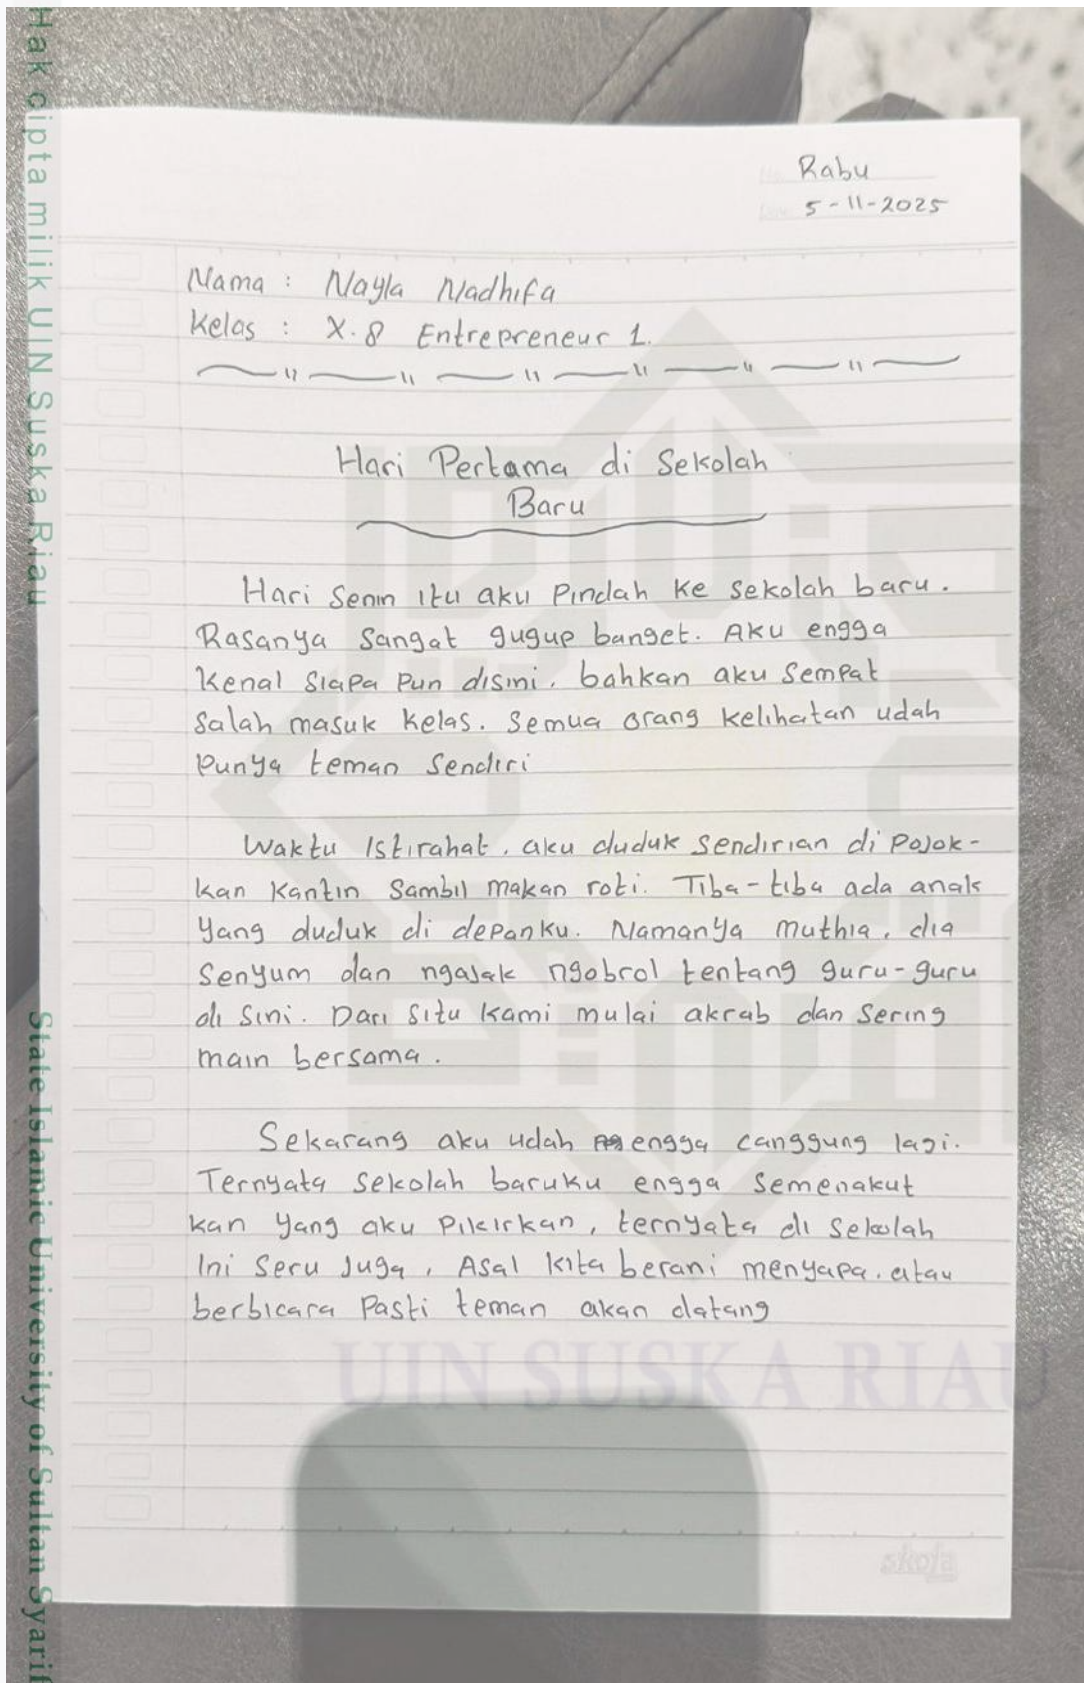 Hak cipta milik UIN Suska Riau
State Islamic University of Sultan Syarif
Rabu
5-11-2025
Nama : Nayla Nadhifa
Kelas : X.8 Entrepreneur 1.
Hari Pertama di Sekolah
Baru
Hari Senin itu aku Pindah ke sekolah baru.
Rasanya Sangat gugup banget. Aku engga
kenal siapa pun disini, bahkan aku sempat
Salah masuk kelas. Semua orang kelihatan udah
Punya teman Sendiri
Waktu Istirahat, aku duduk sendirian di Pojok-
kan kantin Sambil makan roti. Tiba-tiba ada anak
yang duduk di depanku. Namanya muthia, dia
Senyum dan ngajak ngobrol tentang guru-guru
di sini. Dari situ kami mulai akrab dan sering
main bersama.
Sekarang aku udah engga canggung lagi.
Ternyata sekolah baruku engga Semenakut
kan yang aku Pikirkan, ternyata di sekolah
Ini Seru Juga, Asal kita berani menyapa, atau
berbicara Pasti teman akan datang
UIN SUSKA RIAU
skola